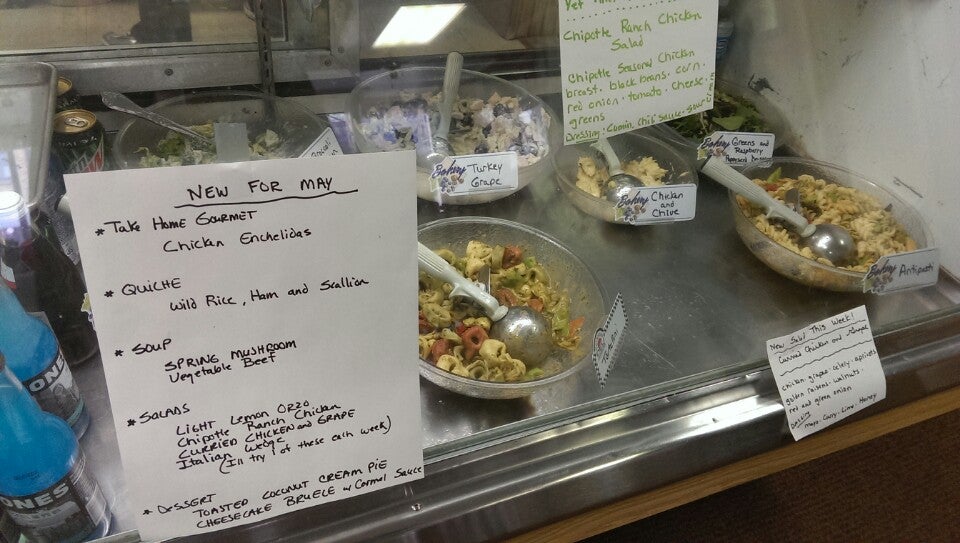 NEW FOR MAY
* TAKE HOME GOURMET
CHICKEN ENCHELIDAS
* QUICHE
WILD RICE, HAM AND SCALLION
* SOUP
SPRING MUSHROOM
Vegetable BEEF
* SALADS
LIGHT LEMON ORZO
Chipotle Ranch Chicken
CURRIED CHICKEN and GRAPE
Italian Wedge
(I'll try 1 of these each week)
* DESSERT
TOASTED COCONUT CREAM PIE
CHEESECAKE BRUELE w/ Carmel Sauce
Chipotle Ranch Chicken
Salad
Chipotle Seasoned Chicken
breast, black beans. corn.
red onion. tomato. cheese.
greens
Dressing. Cumin, Chili Sauce. sour
Bakery Turkey
Grape
Bakery Chicken
and
Chive
Bakery Greens and
Raspberry
Bakery Antipasti
New Salad This Week!
Curried Chicken and Grape
chicken. grapes. celery. apricots
golden raisins. walnuts.
red and green onion
mayo. Curry. Lime. Honey
ONES
ONES